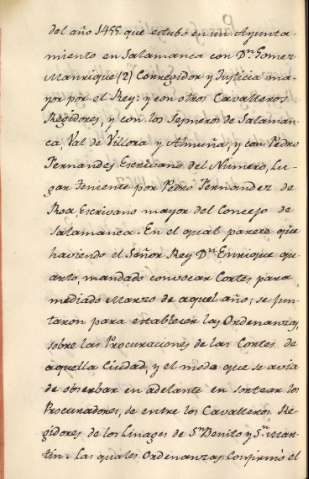 del año 1455 que estubo en un Ayunta-
miento en Salamanca con Dn. Gomez
Manrrique (2) Corregidor y Justicia ma-
yor por el Rey: y con otros Cavalleros
Regidores, y con los Sesmeros de Salaman-
ca, Val de Villora y Almuña, y con Pedro
Fernandez Escrivano del Numero, Lu-
gar Teniente por Pedro Fernandez de
Roa Escrivano mayor del Concejo de
Salamanca. En el qual parece que
haviendo el Señor Rey Dn. Enrrique qu-
arto, mandado convocar Cortes para
mediado Marzo de aquel año; se jun-
taron para establecer las Ordenanzas,
sobre las Procuraciones de las Cortes de
aquella Ciudad, y el modo que se avia
de obserbar en adelante en sortear los
Procuradores, se entre los Cavalleros Re-
gidores de los Linages de Sn. Benito y Sn. Mar-
tin: las quales Ordenanzas confirmó el